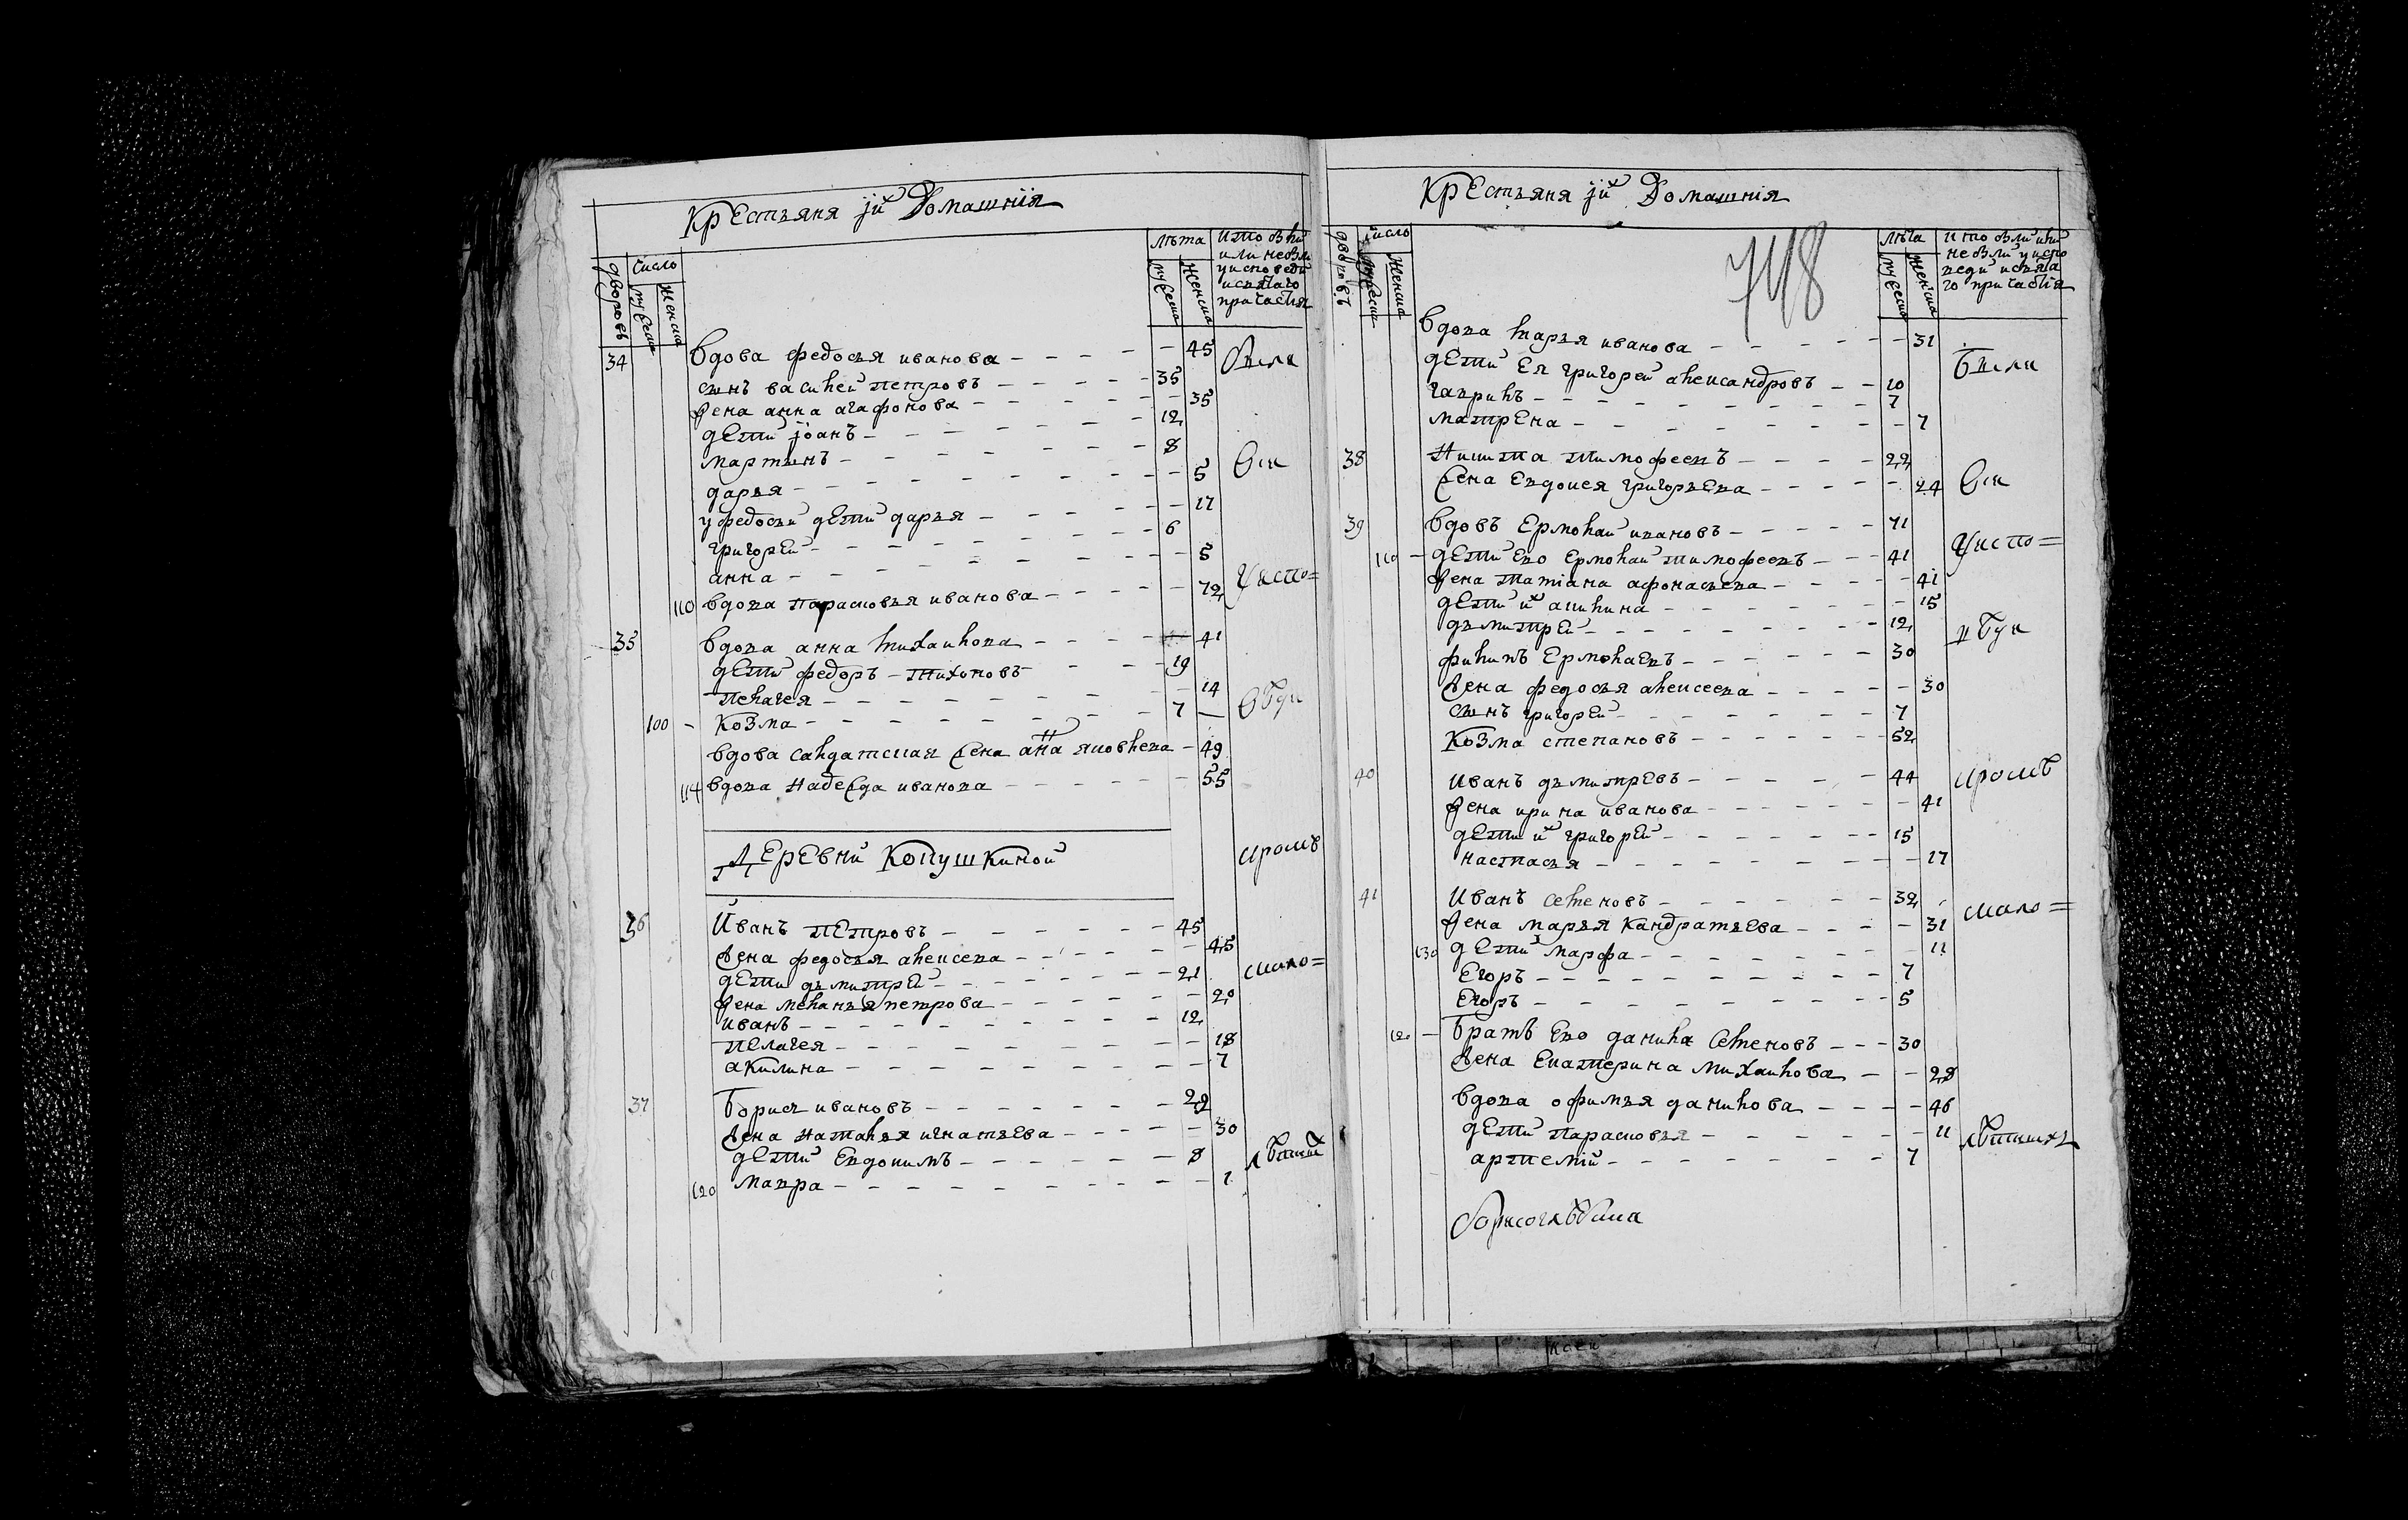 Крестьяня их Домашнїя
дворовъ
число
мужеска
женска
лѣта
мужеска
женска
кто были
или небыли
у исповеди
и святаго
причастия
34 вдова федосья иванова - 45
сынъ василей петровъ - 35
жена анна агафонова - 35
дети іоанъ - 12
мартынъ - 8
дарья - 5
у федосьи дети дарья - 17
григорей - 6
анна - 5
110 вдова парасковья иванова - 72
35 вдова анна михаилова - 41
дети федоръ тихоновъ - 19
пелагея - 14
100 - козма - 7
вдова салдатская жена анна яковлева - 49
114 вдова надежда иванова - 55
Деревни Копушкиной
36 Иванъ петровъ - 45
жена федосья алексеева - 45
дети дъмитрей - 21
жена меланья петрова - 20
иванъ - 12
пелагея - 18
акилина - 7
37 борисъ ивановъ - 29
жена наталья игнатьева - 30
дети евдокимъ - 8
120 мавра - 1
были
вси
у испо=
в буи
кромѣ
мало=
лѣтних
Крестьяня их Домашнія
748
дворовъ
число
мужеска
женска
лѣта
мужеска
женска
кто были или
не были у испо
веди и свята
го причастїя
вдова марья иванова - 31
дети ея григорей александровъ - 10
гаврилъ - 7
матрена - 7
38 никита тимофеевъ - 22
жена евдокея григорьева - 24
39 вдовъ ермолай ивановъ - 71
110 - дети ево ермолай тимофеевъ - 41
жена татіана афонасьева - 41
дети их акилина - 15
дъмитрей - 12
филипъ ермолаевъ - 30
жена федосья алексеева - 30
сынъ григорей - 7
козма степановъ - 52
40 иванъ дъмитревъ - 44
жена ирина иванова - 41
дети их григорей - 15
настасья - 17
41 иванъ семеновъ - 32
жена марья кандратьева - 31
130 дети марфа - 11
егоръ - 7
егоръ - 5
120 - братъ ево данила семеновъ - 30
жена екатерина михаилова - 28
вдова офимья данилова - 46
дети парасковья - 11
артемій - 7
были
вси
у испо=
кромѣ
мало=
лѣтныхъ